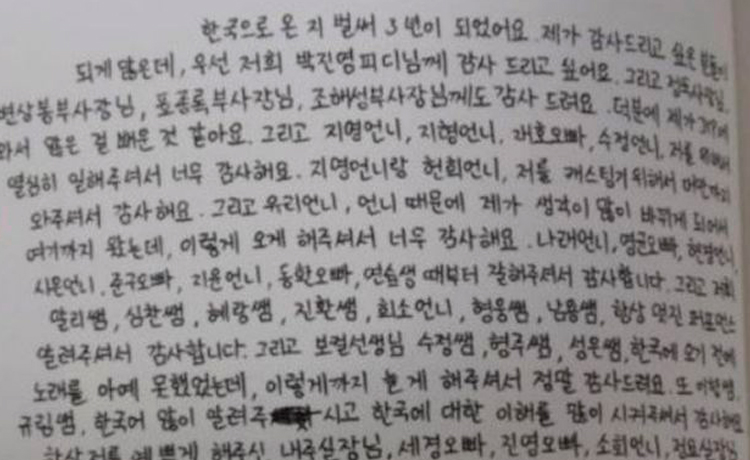 한국으로 온 지 벌써 3년이 되었어요. 제가 감사드리고 싶은 분들이
되게 많은데, 우선 저희 박진영피디님께 감사 드리고 싶어요. 그리고 정욱사장님,
변상봉부사장님, 표종록부사장님, 조해성부사장님께도 감사 드려요. 덕분에 제가
와서 많은 걸 배운 것 같아요. 그리고 지영언니, 지형언니, 재호오빠, 수정언니, 저를 위해서
열심히 일해주셔서 너무 감사해요. 지영언니랑 현희언니, 저를 캐스팅하기 위해서 대만까지
와주셔서 감사해요. 그리고 유리언니, 언니 때문에 제가 생각이 많이 바뀌게 되어서
여기까지 왔는데, 이렇게 오게 해주셔서 너무 감사해요. 나래언니, 영균오빠, 현경언니,
시온언니, 준구오빠, 지윤언니, 동환오빠, 연습생 때부터 잘해주셔서 감사합니다. 그리고 저희
말리쌤, 심찬쌤, 혜랑쌤, 진환쌤, 희소언니, 형웅쌤, 남용쌤, 항상 멋진 퍼포먼스
알려주셔서 감사합니다. 그리고 보컬선생님 수정쌤, 형주쌤, 성은쌤, 한국에 오기 전에
노래를 아예 못했었는데, 이렇게까지 늘게 해주셔서 정말 감사드려요. 또
규림쌤, 한국어 많이 알려주시고 한국에 대한 이해를 많이 시켜주셔서 감사해요
항상 저를 예쁘게 해주신 내주실장님, 세경오빠, 진영오빠, 소희언니, 정요실장님